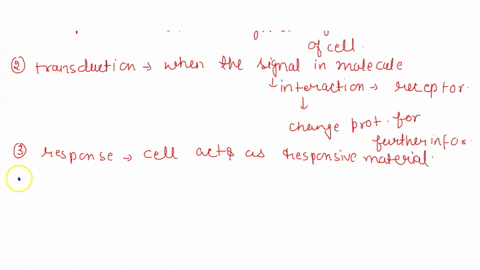 of cell.
② transduction → when the signal in molecule
↓ interaction → receptor.
↓
change prot. for
further infor.
③ response → cell acts as responsive material.